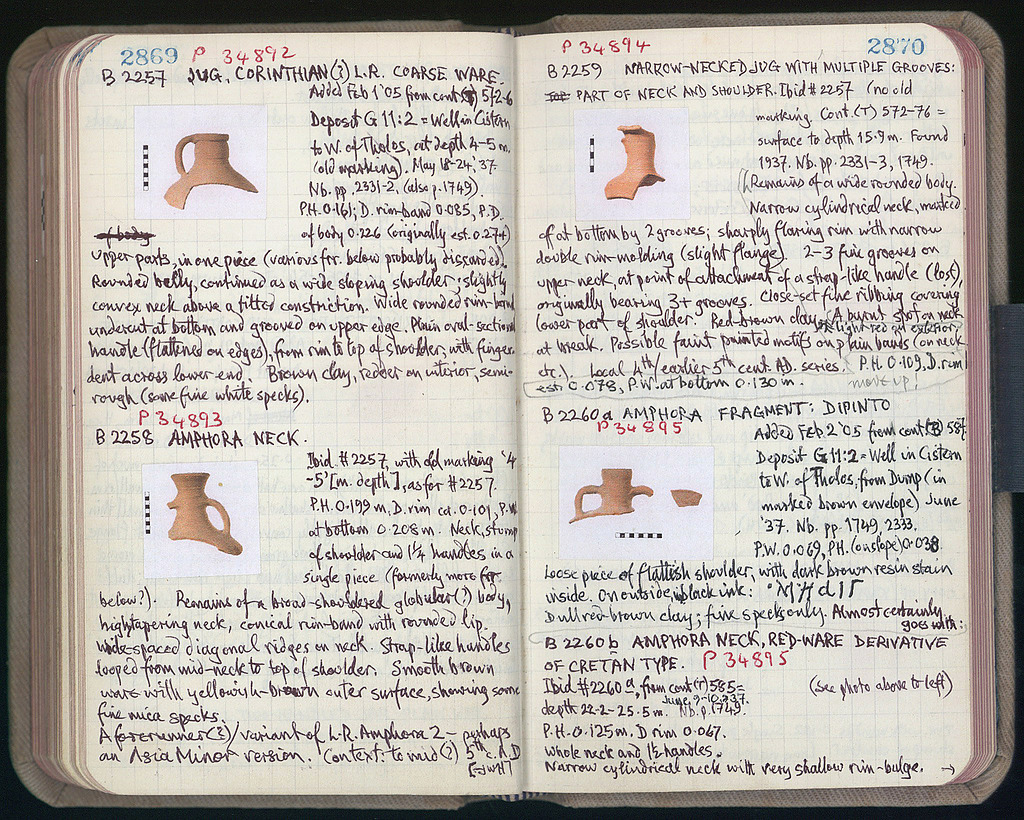 2869 P 34892
B 2257 JUG, CORINTHIAN(?) L.R. COARSE WARE.
Added Feb 1 '05 from cont (T) 572-6
Deposit G 11:2 = Well in Cistern
to W. of Tholos, at depth 4-5 m.
(old marking). May 18-24, '37.
Nb. pp. 2331-2, (also p. 1749).
P.H. 0.161; D. rim-band 0.085, P.D.
of body 0.226 (originally est. 0.274)
Upper parts, in one piece (various frr. below probably discarded).
Rounded belly, continued as a wide sloping shoulder; slightly
convex neck above a fitted constriction. Wide rounded rim-band
undercut at bottom and grooved on upper edge. Plain oval-section
handle (flattened on edges), from rim to top of shoulder; with finger
dent across lower end. Brown clay, redder on interior, semi-
rough (some fine white specks).
P 34893
B 2258 AMPHORA NECK.
Ibid. #2257, with old marking '4
-5' [m. depth], as for #2257.
P.H. 0.199 m, D. rim ca. 0.101, P.W.
at bottom 0.208 m. Neck, stump
of shoulder and 1¼ handles in a
single piece (formerly more frr.
below?). Remains of a broad-shouldered globular(?) body,
high tapering neck, conical rim-band with rounded lip.
Wide-spaced diagonal ridges on neck. Strap-like handles
looped from mid-neck to top of shoulder. Smooth brown
ware with yellowish-brown outer surface, showing some
fine mica specks.
A forerunner(?)/variant of L.R. Amphora 2 - perhaps
an Asia Minor version. (Context: to mid(?) 5th c. A.D.
P 34894 2870
B 2259 NARROW-NECKED JUG WITH MULTIPLE GROOVES:
PART OF NECK AND SHOULDER. Ibid #2257 (no old
marking. Cont. (T) 572-76 =
surface to depth 15.9 m. Found
1937. Nb. pp. 2331-3, 1749.
Remains of a wide rounded body.
Narrow cylindrical neck, marked
off at bottom by 2 grooves; sharply flaring rim with narrow
double rim-molding (slight flange). 2-3 fine grooves on
upper neck, at point of attachment of a strap-like handle (lost),
originally bearing 3+ grooves. Close-set fine ribbing covering
lower part of shoulder. Red-brown clay, light red on exterior. A burnt spot on neck
at break. Possible faint painted motifs on plain bands (on neck
etc.). Local 4th/earlier 5th cent. AD. series. P.H. 0.109, D. rim
est. 0.078, P.W. at bottom 0.130 m. move up!
B 2260a AMPHORA FRAGMENT: DIPINTO
P 34895
Added Feb. 2 '05 from cont. 587
Deposit G 11:2 = Well in Cistern
to W. of Tholos, from Dump (in
marked brown envelope) June
'37. Nb. pp. 1749, 2333.
P.W. 0.069, P.H. (on slope) 0.038
Loose piece of flattish shoulder, with dark brown resin stain
inside. On outside, in black ink:
Dull red-brown clay; fine specks only. Almost certainly
goes with:
B 2260b AMPHORA NECK, RED-WARE DERIVATIVE
OF CRETAN TYPE. P 34895
Ibid #2260a, from cont (T) 585 = (See photo above to left)
depth 22.2-25.5 m. June 9-10, '37. Nb. p. 1749.
P.H. 0.125 m. D rim 0.067.
Whole neck and 1½ handles.
Narrow cylindrical neck with very shallow rim-bulge. →